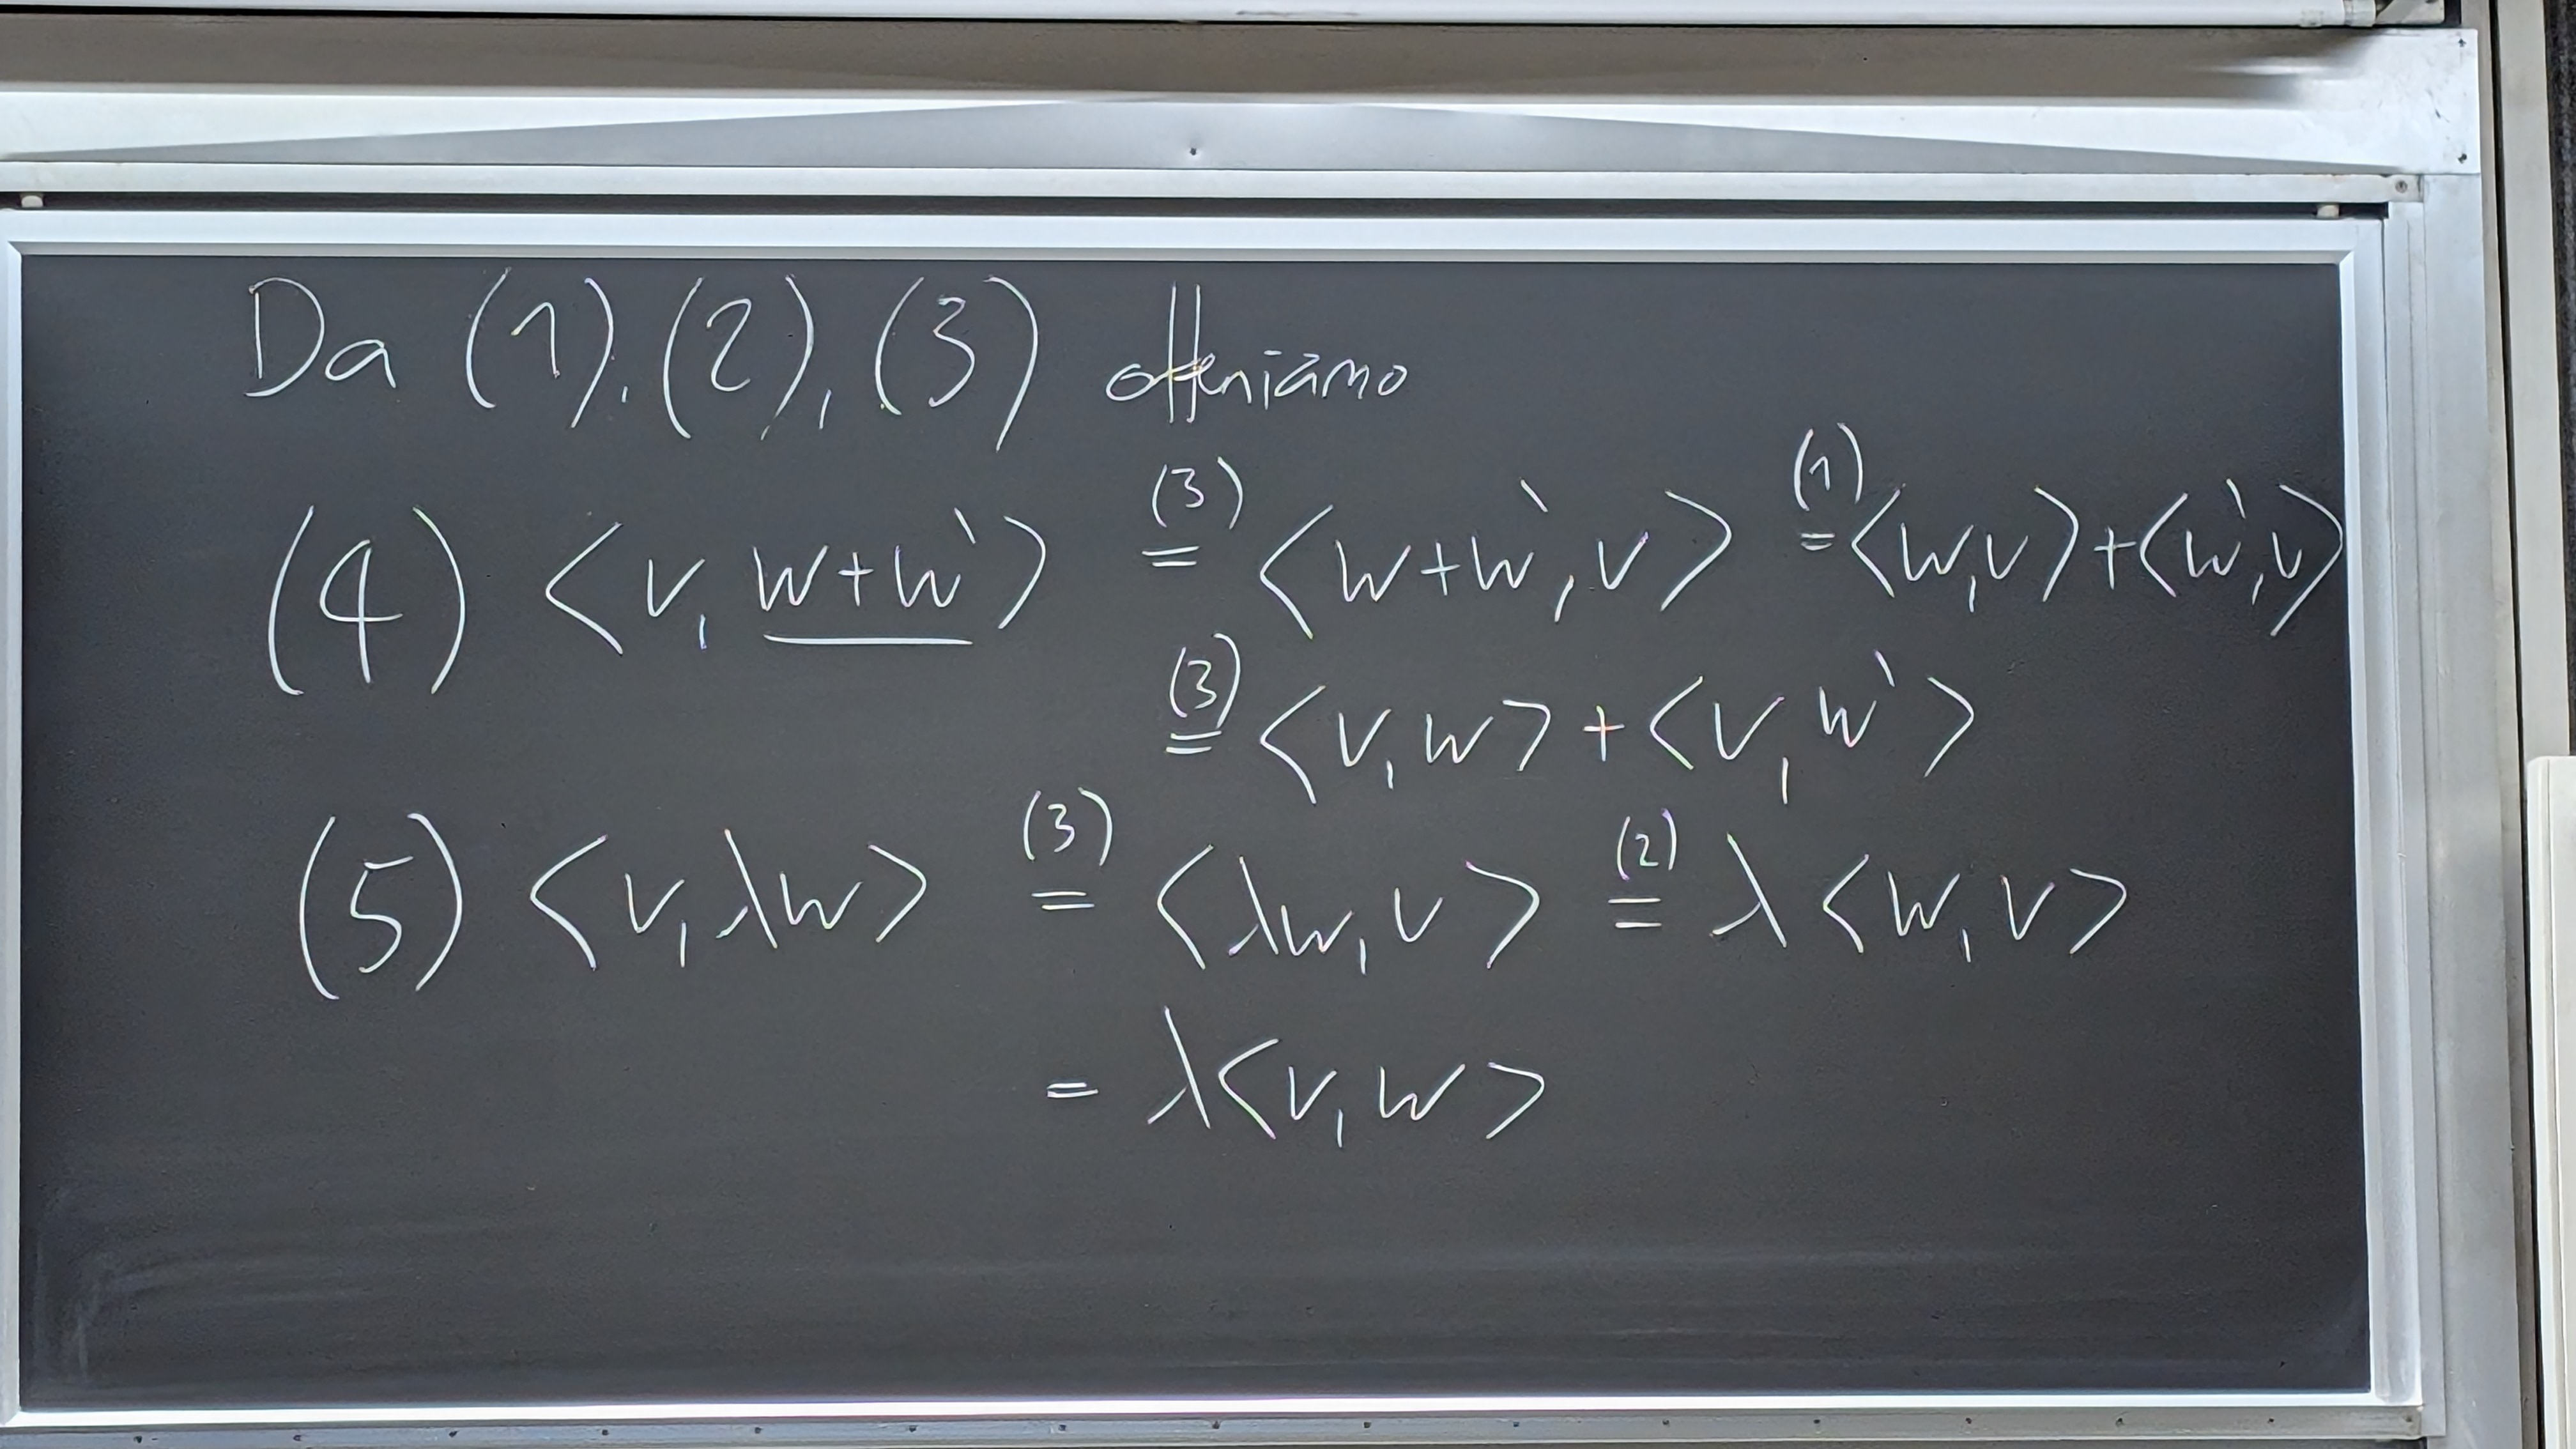 Da (1), (2), (3) otteniamo
(4) <v, w+w'> (3)= <w+w', v> (1)= <w,v>+<w',v>
(3)= <v,w>+<v,w'>
(5) <v,λw> (3)= <λw,v> (2)= λ<w,v>
= λ<v,w>